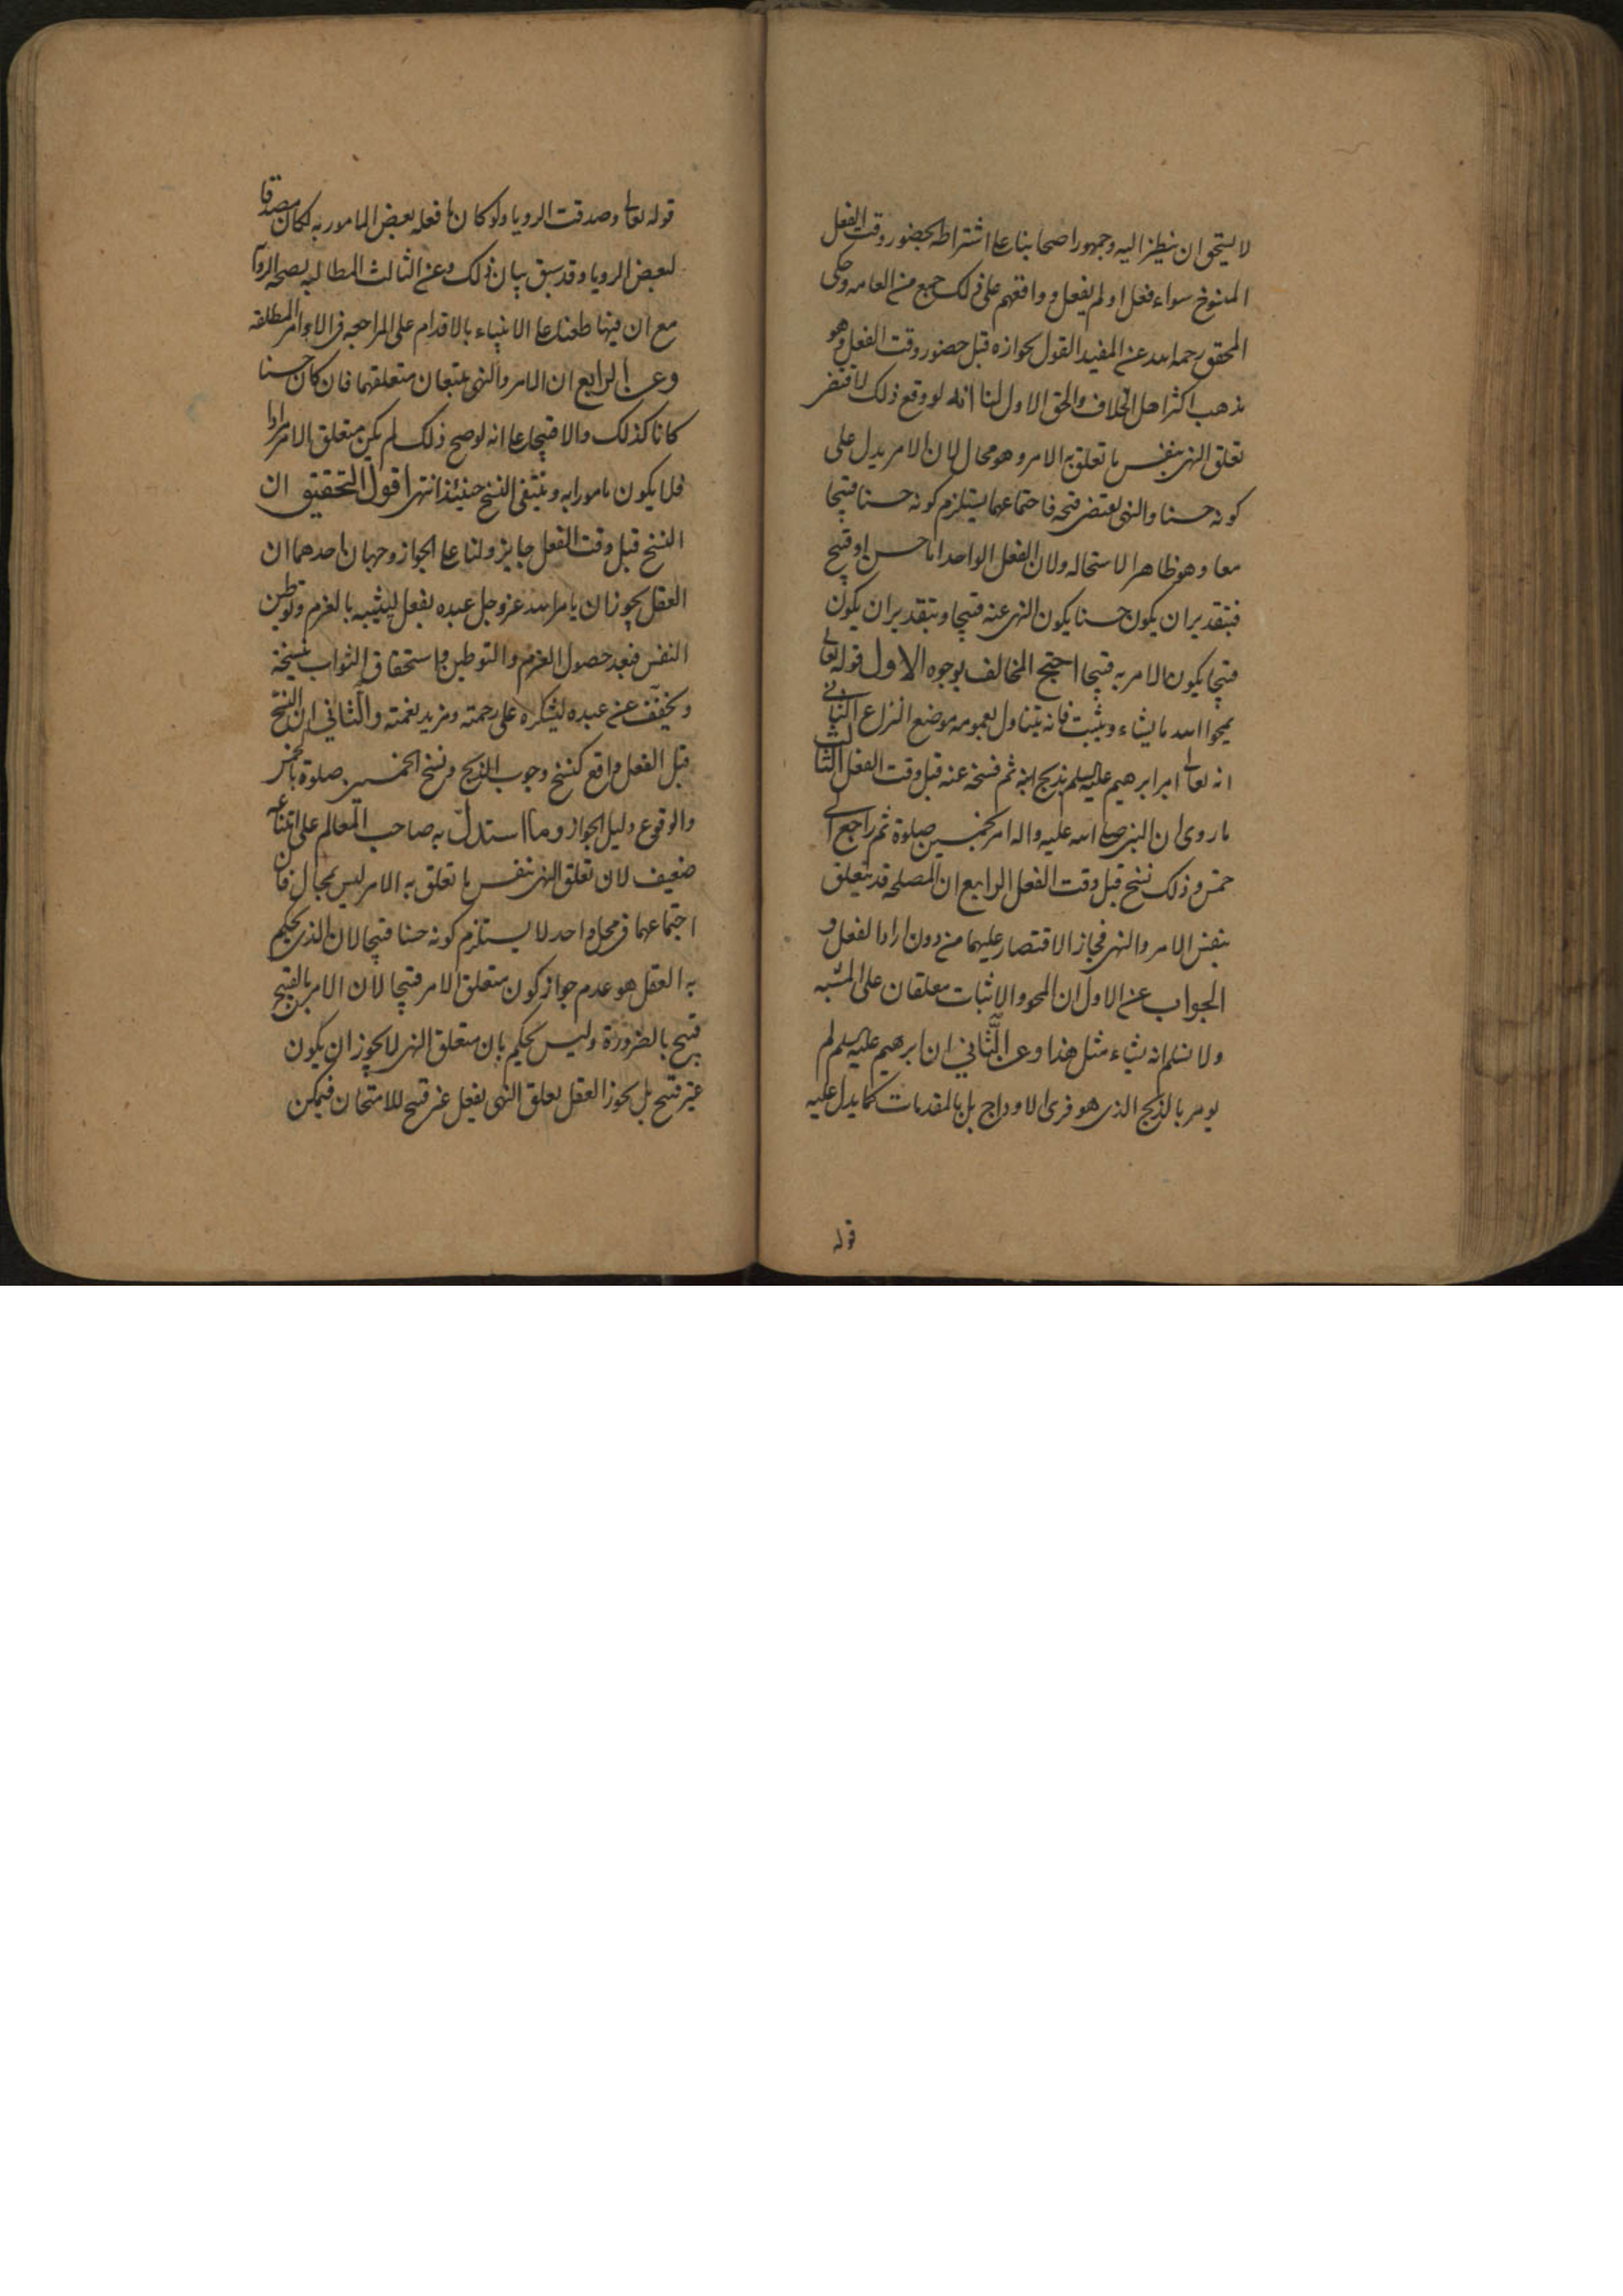 لا يستحق ان ينظر اليه وجمهور اصحابنا علے اشتراطه بحضور وقت الفعل
المنسوخ سواء فعل او لم يفعل و وافقهم على ذلك جمع من العامه وحكى
المحقق رحمه الله عن المفيد القول بجوازه قبل حضور وقت الفعل وهو
مذهب اكثر اهل الخلاف والحق الاول لنا انه لو وقع ذلك لاقتضى
تعلق النهى بنفس ما تعلق به الامر وهو محال لان الامر يدل على
كونه حسنا والنهى يقتضى قبحه فاجتماعهما يستلزم كونه حسنا قبيحا
معا وهو ظاهر الاستحاله ولان الفعل الواحد اما حسن او قبيح
فبتقدير ان يكون حسنا يكون النهى عنه قبيحا وبتقدير ان يكون
قبيحا يكون الامر به قبيحا احتج المخالف بوجوه الاول قوله تعالى
يمحوا الله ما يشاء ويثبت فانه يتناول بعمومه موضع النزاع الثانى
انه تعالى امر ابرهيم عليه السلم بذبح ابنه ثم نسخه عنه قبل وقت الفعل الثالث
ما روى ان النبى صلے الله عليه واله امر بخمسين صلوة ثم راجع الى
خمس وذلك نسخ قبل وقت الفعل الرابع ان المصلحه قد يتعلق
بنفس الامر والنهى فجاز الاقتصار عليهما من دون ارادا لفعل و
الجواب عن الاول ان المحو والاثبات معلقان على المشيه
ولا نسلم انه يشاء مثل هذا وعن الثانى ان ابرهيم عليه السلم لم
يومر بالذبح الذى هو فرى الاوداج بل بالمقدمات كما يدل عليه
قوله
قوله تعالى وصدقت الرويا ولو كان ما فعله بعض المامور به لكان مصدقا
لبعض الرويا وقد سبق بيان ذلك وعن الثالث المطالبه بصحه الروايه
مع ان فيها طعنا علے الانبياء بالاقدام على المراجعه فى الاوامر المطلقه
وعن الرابع ان الامر والنهى يتبعان متعلقهما فان كان حسنا
كانا كذلك والا قبيحا علے انه لو صح ذلك لم يكن متعلق الامر مرادا
فلا يكون مامورا به وينتفى النسخ حينئذ انتهى اقول التحقيق ان
النسخ قبل وقت الفعل جايز ولنا علے الجواز وجهان احدهما ان
العقل يجوز ان يامر الله عز وجل عبده بفعل ليثيبه بالعزم وتوطين
النفس فبعد حصول العزم والتوطين واستحقاق الثواب ينسخه
ويخفف عن عبده ليشكره على رحمته ومزيد نعمته والثانى ان النسخ
قبل الفعل واقع كنسخ وجوب الذبح ونسخ الخمسين صلوة بالخمس
والوقوع دليل الجواز وما استدل به صاحب المعالم على امتناعه
ضعيف لان تعلق النهى بنفس ما تعلق به الامر ليس بمحال فان
اجتماعهما فى محل واحد لا يستلزم كونه حسنا قبيحا لان الذى يحكم
به العقل هو عدم جواز كون متعلق الامر قبيحا لان الامر بالقبيح
قبيح بالضرورة وليس يحكم بان متعلق النهى لا يجوز ان يكون
غير قبيح بل يجوز العقل تعلق النهى بفعل غير قبيح للامتحان فيمكن